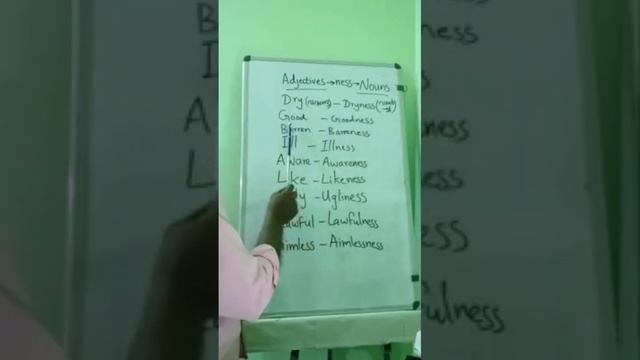 Adjectives → ness → Nouns
Dry – Dryness
Good – Goodness
Barren – Bareness
Ill – Illness
Aware – Awareness
Like – Likeness
– Ugliness
Lawful – Lawfulness
Aimless – Aimlessness